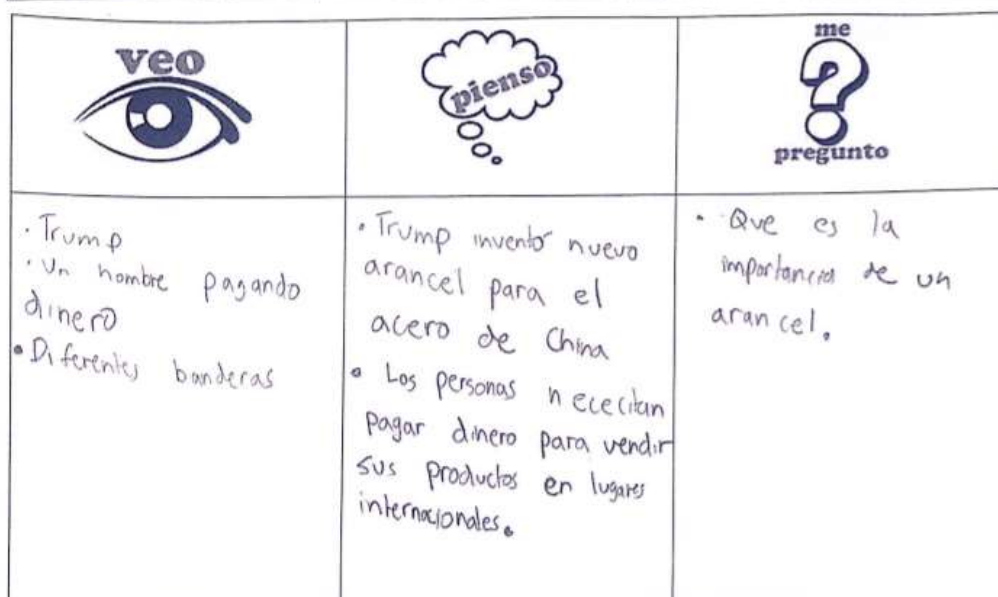 veo
pienso
me
pregunto
• Trump
• Un hombre pagando
dinero
• Diferentes banderas
• Trump invento nuevo
arancel para el
acero de China
• Los personas nececitan
pagar dinero para vendir
sus productos en lugares
internacionales.
• Que es la
importancia de un
arancel.